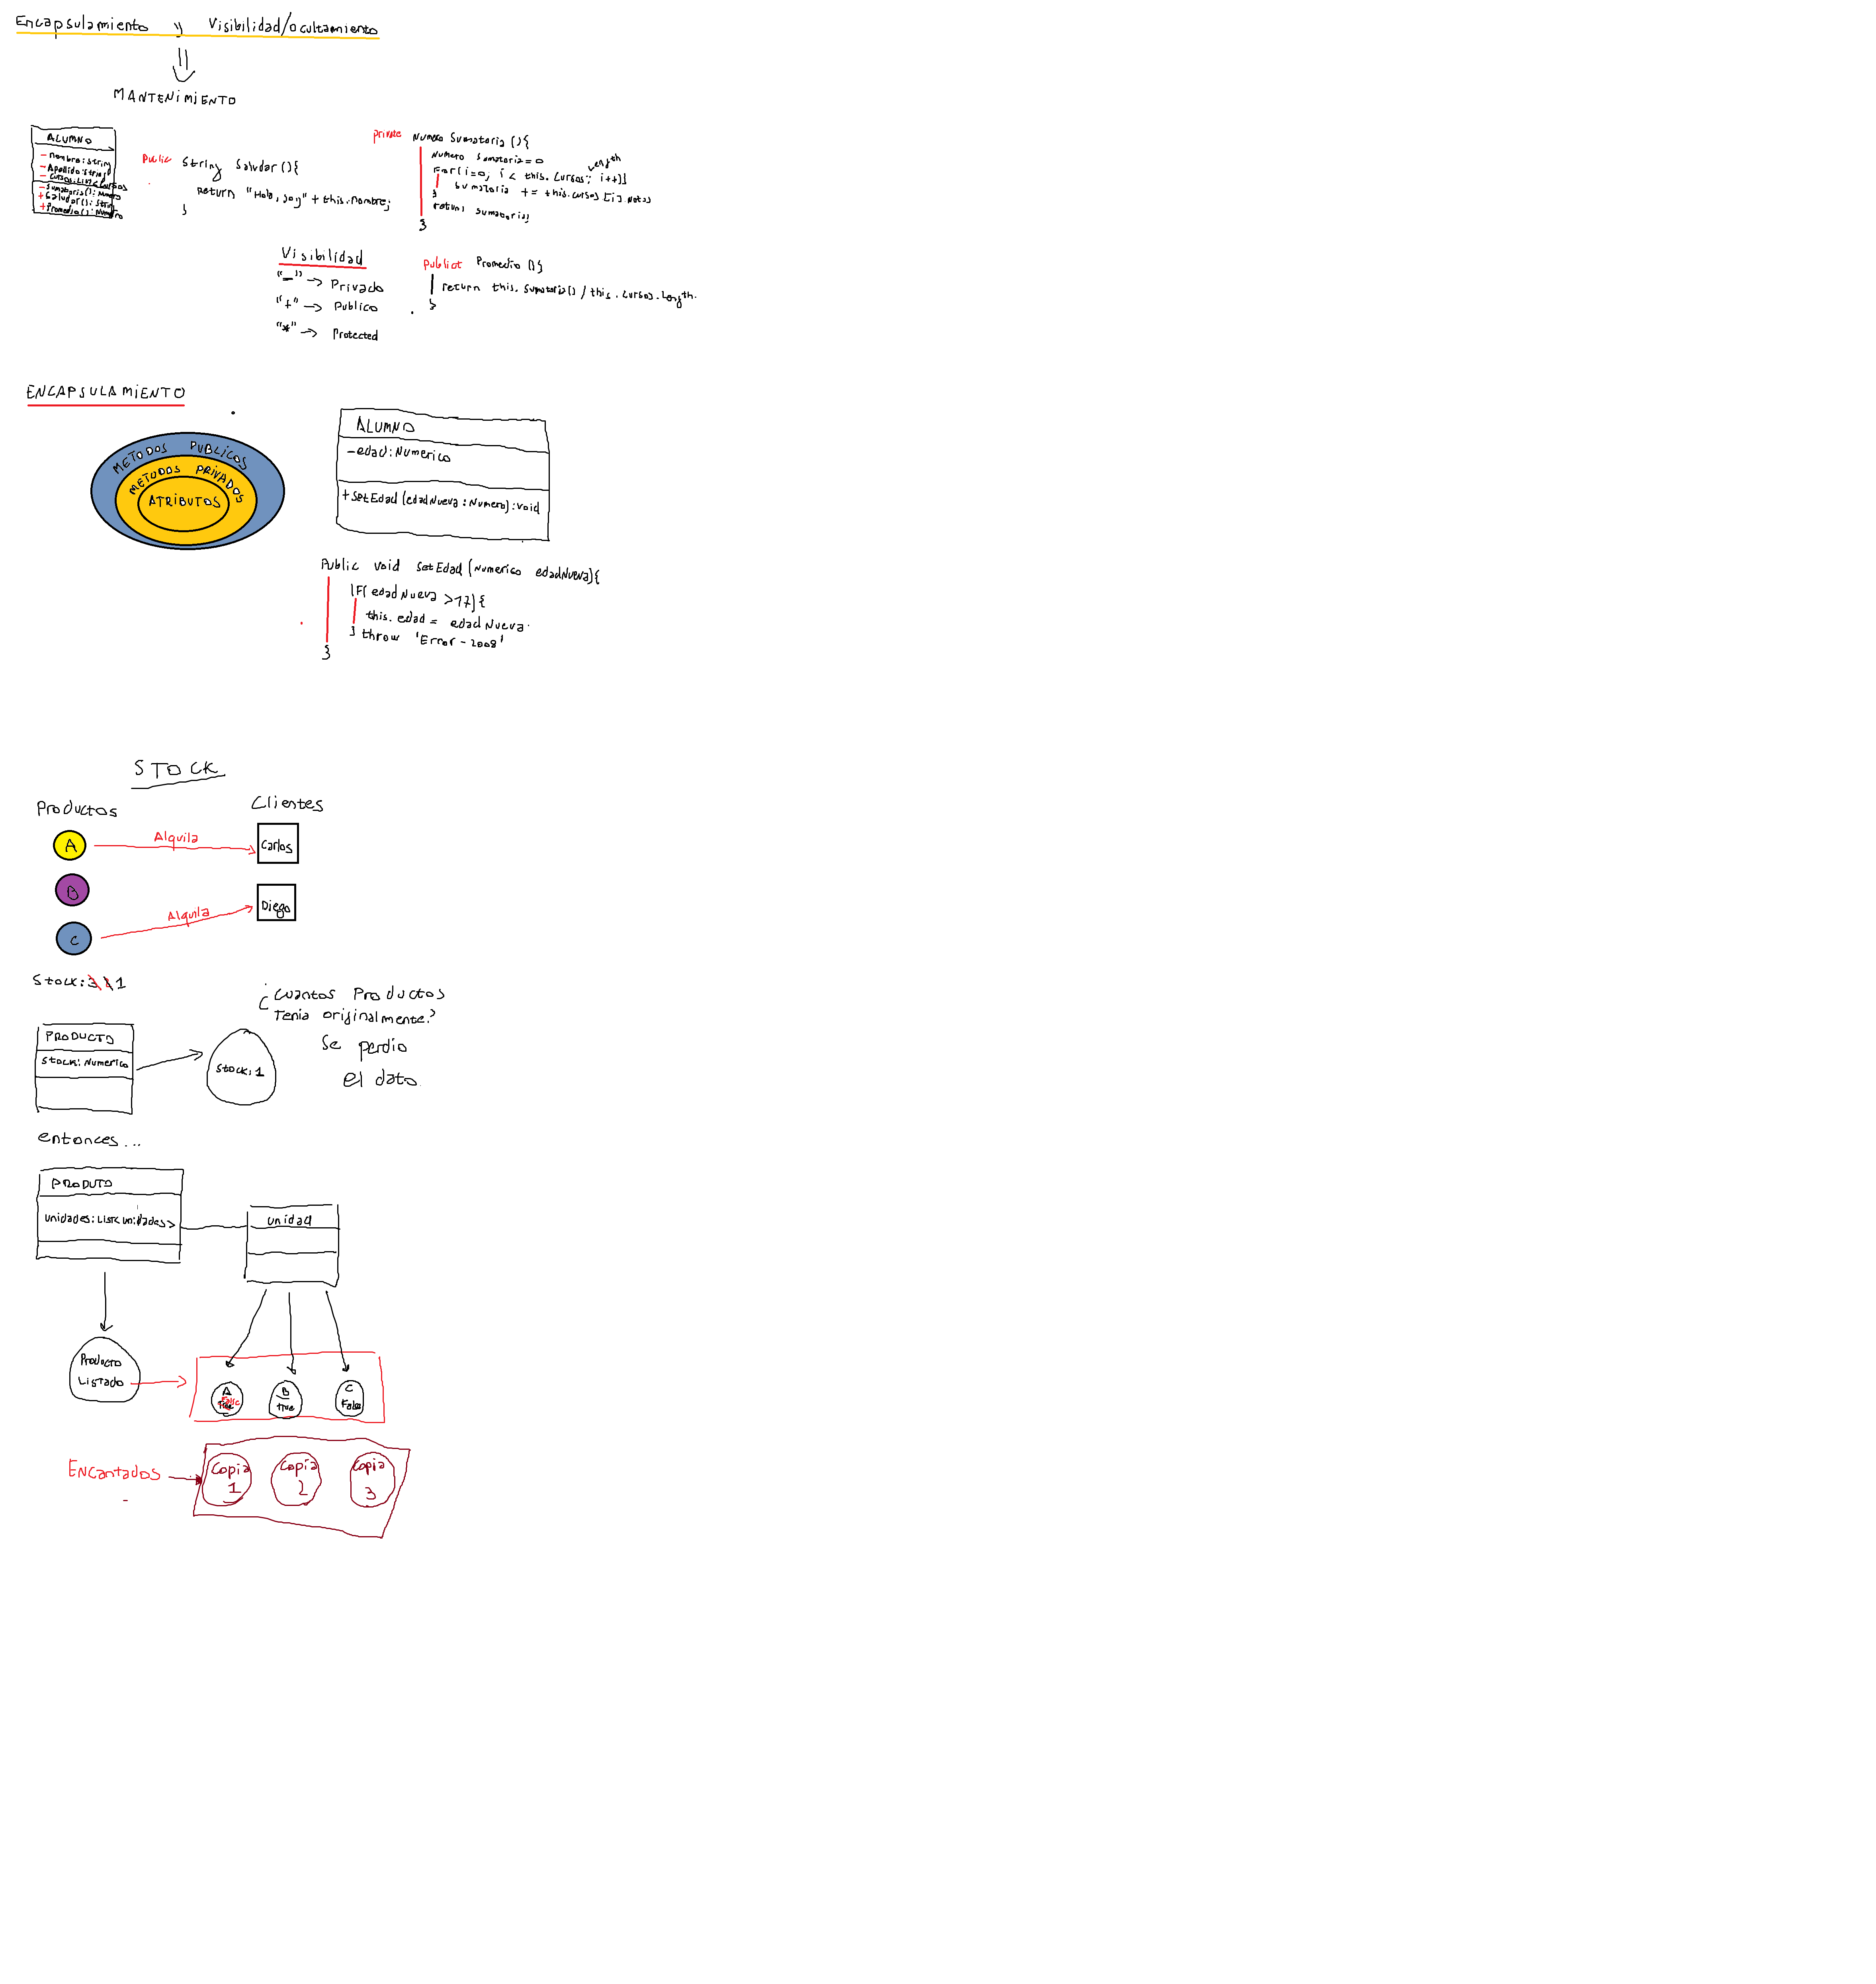 Encapsulamiento y Visibilidad/ocultamiento
MANTENIMIENTO
ALUMNO
- nombre: String
- Apellido: String
- Cursos: List<Cursos
- Sumatoria(): Numero
+ Saludar(): String
+ Promedio(): Numero
Public String Saludar(){
return "Hola, soy" + this.nombre;
}
private Numero Sumatoria (){
Numero Sumatoria = 0
Length
For(i=0, i < this.Cursos; i++){
Sumatoria += this.cursos[i].Notas
}
return sumatoria;
}
Visibilidad
"-" -> Privado
"+" -> Publico
"*" -> Protected
Promedio (){
return this.sumatoria() / this.cursos.Length.
}
ENCAPSULAMIENTO
METODOS PUBLICOS
METODOS PRIVADOS
ATRIBUTOS
ALUMNO
- edad: Numerico
+ SetEdad (edadNueva: Numero): void
Public void SetEdad (Numerico edadNueva){
IF(edadNueva >17){
this.edad = edadNueva.
} throw 'Error-2008'
}
STOCK
Productos
Clientes
A
Alquila
Carlos
B
C
Alquila
Diego
Stock: 3 2 1
¿Cuantos Productos
Tenia originalmente?
Se perdio
el dato.
PRODUCTO
Stock: Numerico
Stock: 1
entonces...
PRODUTO
unidades: List<unidades>
unidad
Producto
Listado
A
true
False
B
true
C
False
Encantados
Copia
1
Copia
2
Copia
3